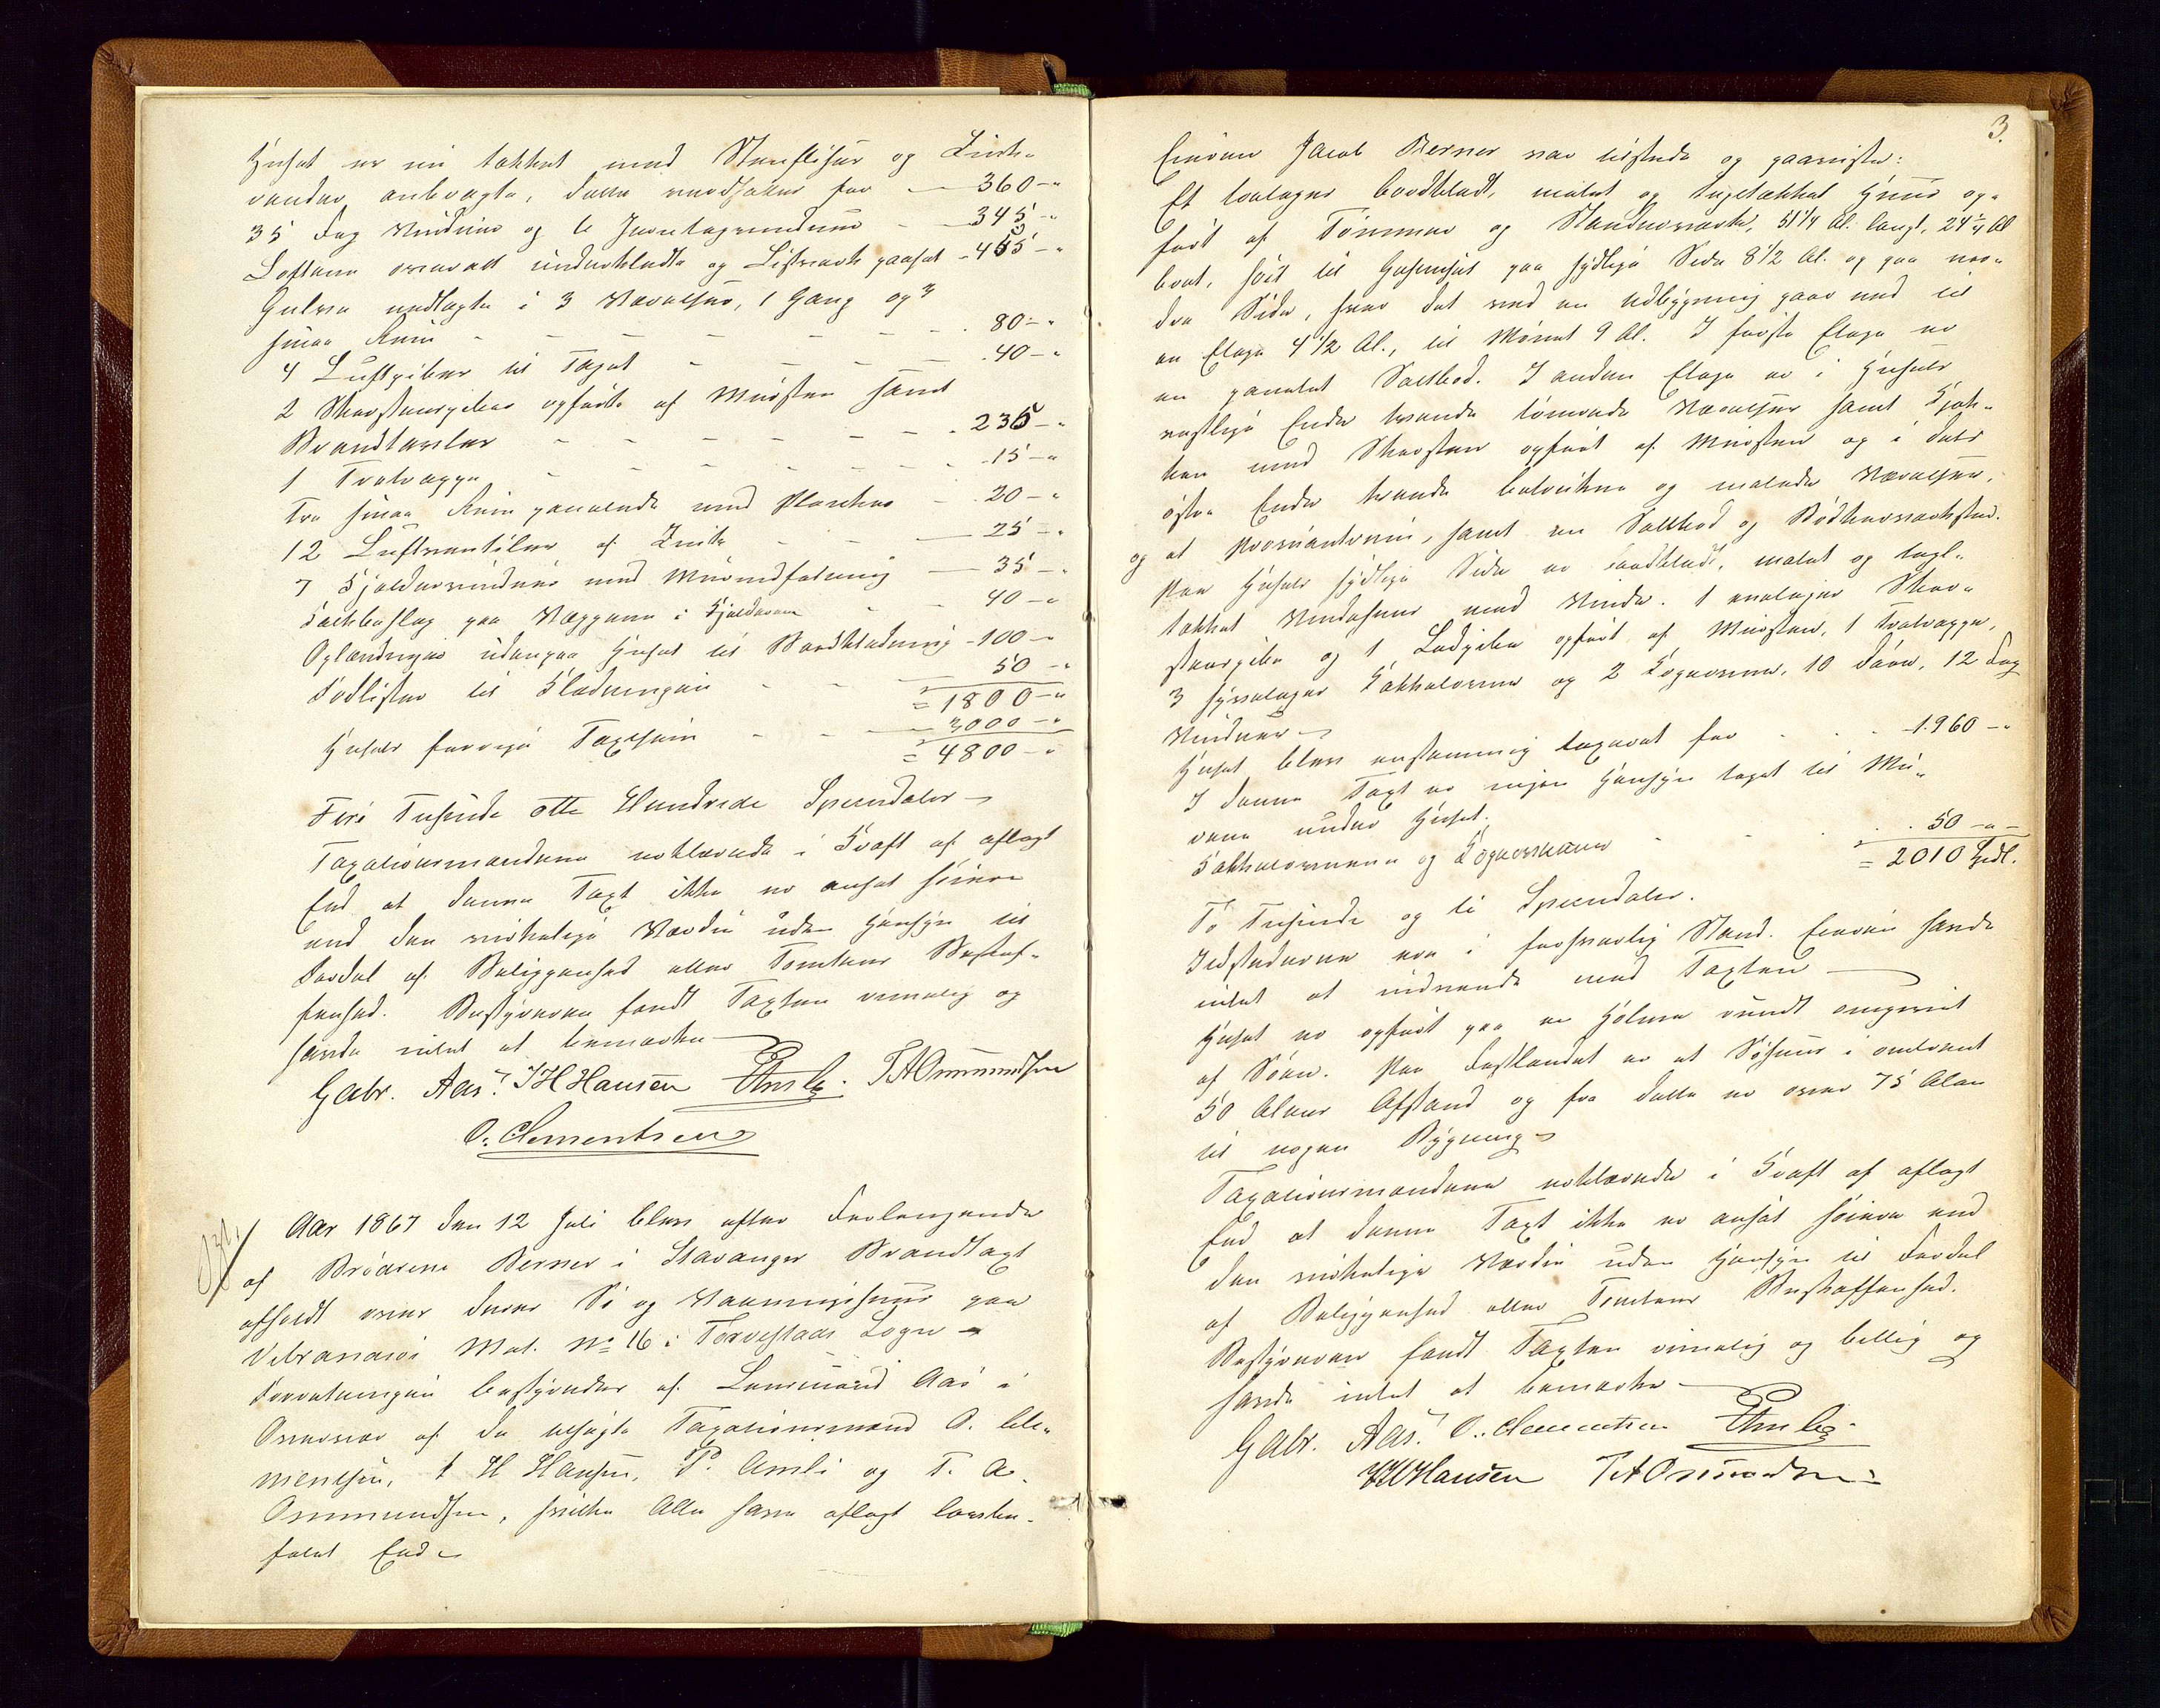 Huset er nu tækket med Steenfliser og Zink-
render anbragte, dette værdsættes for — 360 – "
35 Fag Vinduer og 6 Jerntagvinduer — 345 – "
Lofterne overalt underklædte og Listværk paasat – 455 – "
Gulve nedlagte i 3 Værelser, 1 Gang og 3
smaa Rum - - - - - 80 – "
4 Luftpiber til Taget - - - 40 – "
2 Skorsteenspiber opførte af Muursteen samt
Brandtavler - - - - - 235 – "
1 Tralvægge - - - - - 15 – "
Tre smaa Rum panelede med Planker - 20 – "
12 Luftventiler af Zink - - — 25 – "
7 Kjeldervinduer med Muurindfatning — 35 – "
Kalkbeslag paa Væggene i Kjelderen - - 40 – "
Oplændinger udenpaa Huset til Bordklædning – 100 – "
Fodlister til Klædningen - - — 50 – "
= 1800 – "
Husets forrige Taxtsum - - — 3000 – "
= 4800 – "
Fire Tusinde otte Hundrede Speciedaler –
Taxationsmændene erklærede i Kraft af aflagt
Eed at denne Taxt ikke er ansat høiere
end den virkelige Værdie uden Hensyn til
Fordel af Beliggenhed eller Tomtens Beskaf-
fenhed. Bestyreren fandt Taxten rimelig og
havde intet at bemærke
Gabr. Aas. I H Hansen P Amli. T A Ommundsen
O. Clementsen
Aar 1867 den 12 Juli blev efter Forlangende
af Brødrene Berner i Stavanger Brandtaxt
afholdt over deres Sø og Vaaningshuus paa
Vibrandsø Mat. No 16 i Torvestads Sogn –
Forretningen bestyredes af Lensmand Aas i
Overvær af de udsagte Taxationsmænd O. Cle-
mentsen, I H Hansen, P. Amli og T. A.
Ommundsen, hvilke Alle have aflagt lovbe-
falet Eed –
3.
Eieren Jacob Berner var tilstede og paaviste:
Et toetages bordklædt, malet og tegltækket Huus op-
ført af Tømmer og Stenderværk, 51 1/4 Al. langt, 24 1/4 Al
bredt, høit til Gesimset paa sydlige Side 8 1/2 Al. og paa nor-
dre Side, hvor det ved en Udbygning gaar ned til
en Etage 4 1/2 Al., til Mønet 9 Al. I første Etage er
en panelet Saltbod. I anden Etage er i Husets
vestlige Ende tvende tømrede Værelser samt Kjøk-
ken med Skorsteen opført af Muursteen og i dets
østre Ende tvende betrukne og malede Værelser,
og et Proviantrum, samt en Saltbod og Bødkerværksted.
Paa Husets sydlige Side er bordklædt, malet og tegl-
tækket Vindehuus med Vinde. 1 enetages Skor-
steenspibe og 1 Ladpibe opført af Muursteen, 1 Tralvægge,
3 hyvetages Kakkelovne og 2 Kogeovne, 10 Døre, 12 Fag
Vinduer –
Huset blev enstemmig taxeret for - - - 1960 – "
I denne Taxt er ingen Hensyn taget til Mu-
rene under Huset.
Kakkelovnene og Kogeovnene - - - . 50 – " –
= 2010 Spdl.
To Tusinde og ti Speciedaler.
Ildstederne ere i forsvarlig Stand. Eieren havde
intet at indvende mod Taxten —
Huset er opført paa en Holme rundt omgivet
af Søen. Paa Fastlandet er et Søhuus i omtrent
50 Alens Afstand og fra dette er over 75 Alen
til nogen Bygning –
Taxationsmændene erklærede i Kraft af aflagt
Eed at denne Taxt ikke er ansat høiere end
den virkelige Værdie uden Hensyn til Fordel
af Beliggenhed eller Tomtens Beskaffenhed.
Bestyreren fandt Taxten rimelig og billig og
havde intet at bemærke –
Gabr. Aas. O. Clementsen P Amli
I H Hansen T A Ommundsen